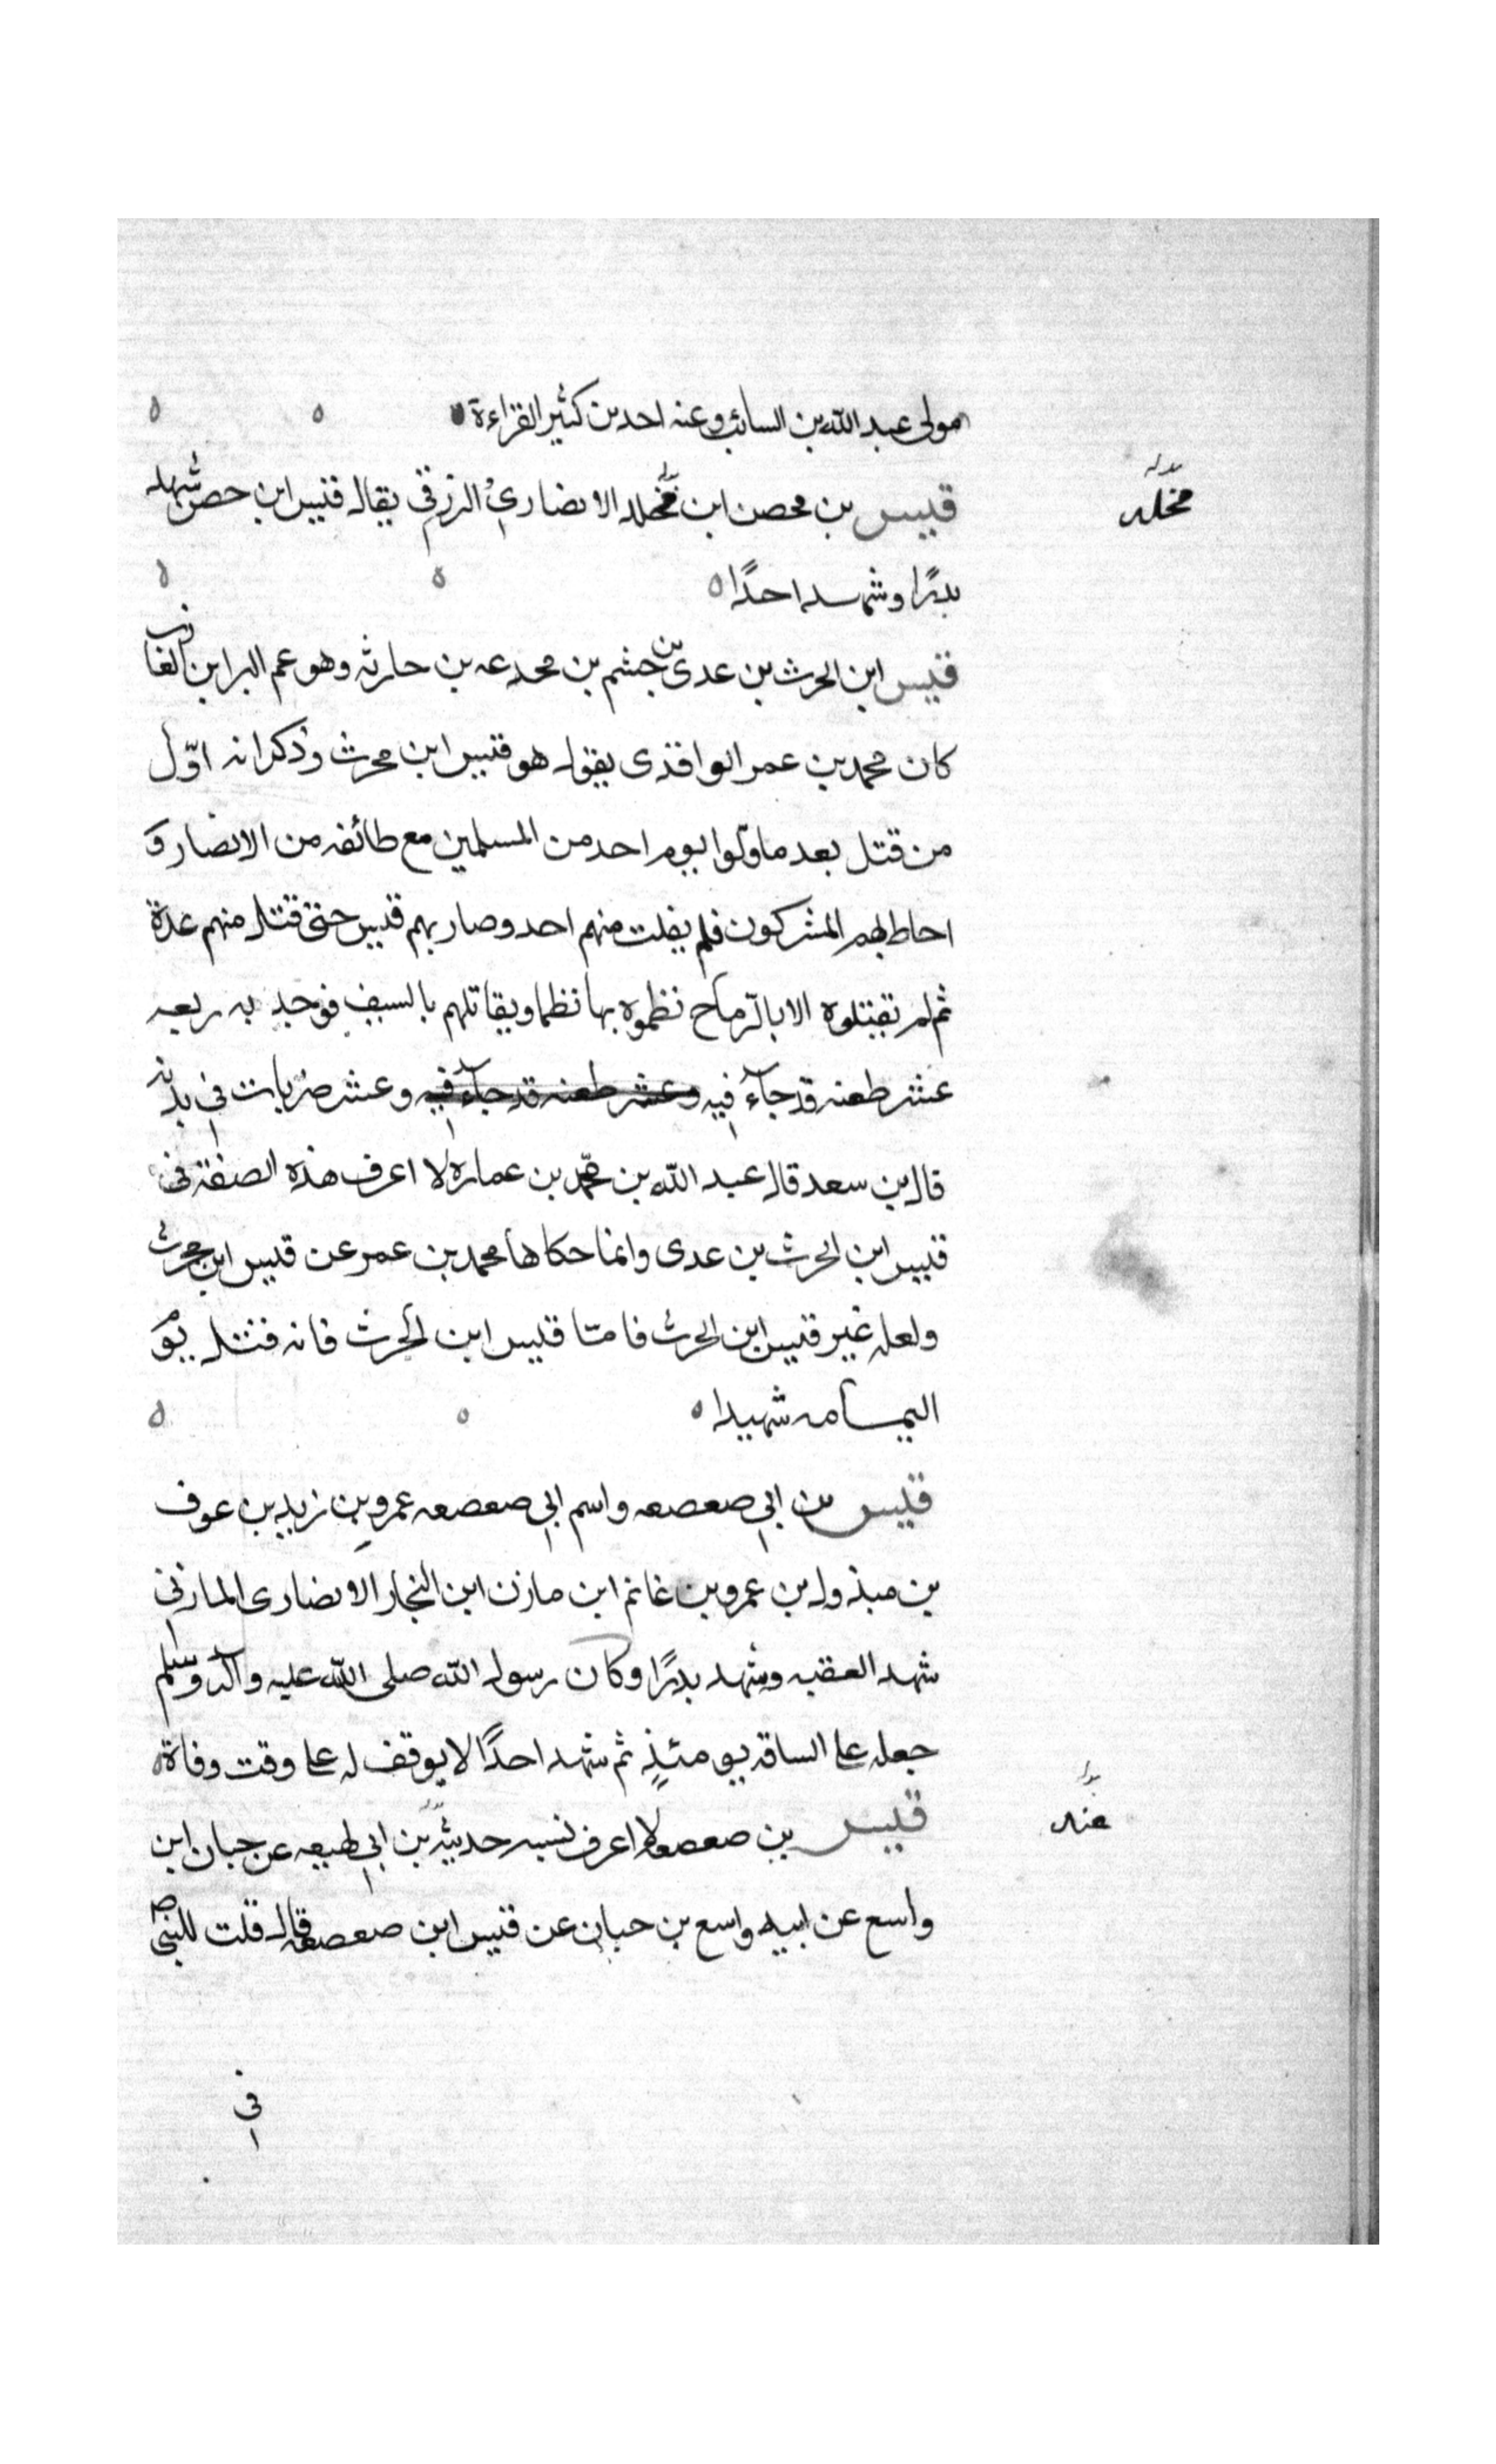 مولى عبد الله بن السائب وعنه احد بن كثير القراءة ه ه ه
قيس بن محصن ابن مخلد الانصاري الزرقي يقال قيس ابن حصن شهد
بدرًا وشهد احدًا ه ه ه
قيس ابن الحرث بن عدى بن جشم بن مجدعه بن حارثه وهو عم البرا ابن عازب
كان محمد بن عمر الواقدى يقول هو قيس ابن محرث وذكر انه اوّل
من قتل بعد ما ولّوا يوم احد من المسلمين مع طائفه من الانصار و
احاط بهم المشركون فلم يفلت منهم احد وصار بهم قيس حتى قتل منهم عدة
ثم لم تقتلوه الا بالرّماح نظموه بها نظما ويقاتلهم بالسيف فوجد به ربعه
عشر طعنه قد جآء فيه وعشر طعنه قد جآء فيه وعشر ضربات في بدنه
قال بن سعد قال عبد الله بن محمد بن عماره لا اعرف هذه الصفة في
قيس ابن الحرث بن عدى وانما حكاها محمد بن عمر عن قيس ابن محرث
ولعله غير قيس ابن الحرث فامّا قيس ابن الحرث فانه قتل يوم
اليمامه شهيدا ه ه ه
قيس بن ابي صعصعه واسم ابي صعصعه عمرو بن زيد بن عوف
بن مبذول بن عمرو بن غانم ابن مازن ابن النجار الانصارى المازني
شهد العقبه وشهد بدرًا وكان رسول الله صلى الله عليه وآله وسلم
جعله على الساقه يومئذٍ ثم شهد احدًا لا يوقف له على وقت وفاة ه
قيس بن صعصعه لا اعرف نسبه حديثه بن ابي لهيعه عن حبان ابن
واسع عن ابيه واسع بن حبان عن قيس ابن صعصعه قال قلت للنبي ص
في
مخلد
عند